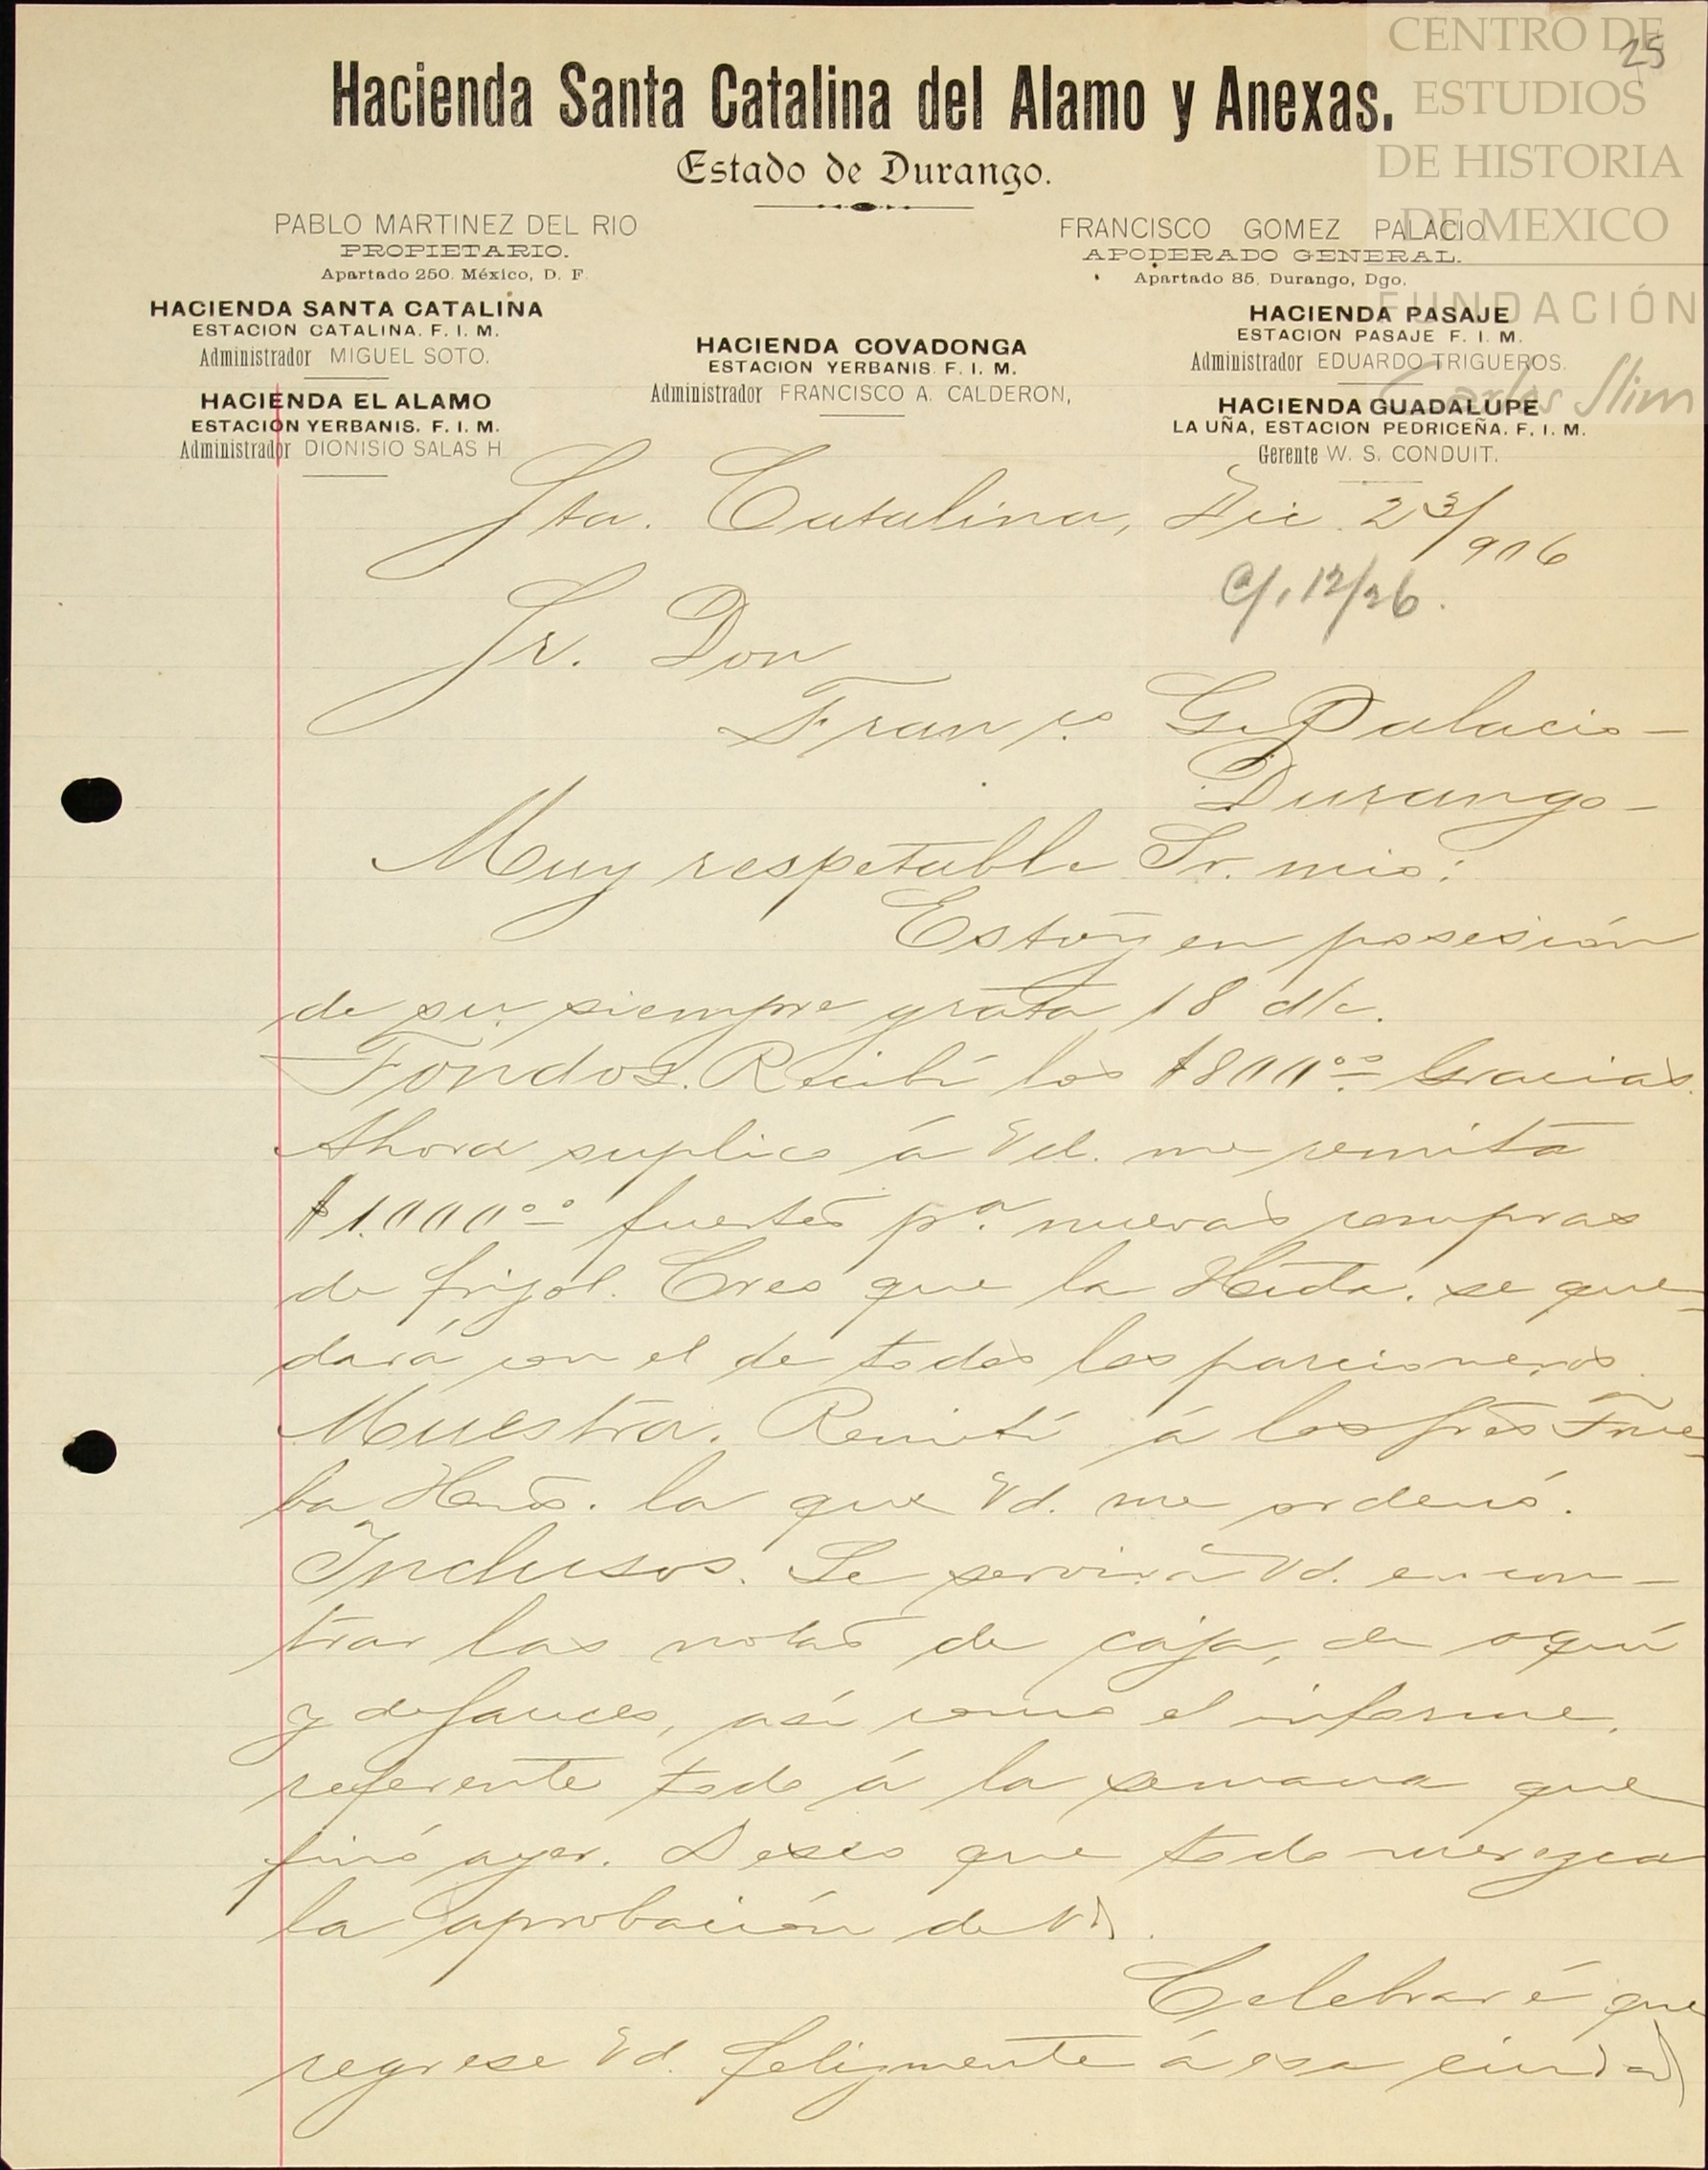 25
CENTRO DE
ESTUDIOS
DE HISTORIA
DE MEXICO
FUNDACIÓN
Carlos Slim
Hacienda Santa Catalina del Alamo y Anexas.
Estado de Durango.
PABLO MARTINEZ DEL RIO
PROPIETARIO.
Apartado 250. México, D. F.
FRANCISCO GOMEZ PALACIO
APODERADO GENERAL.
Apartado 85, Durango, Dgo.
HACIENDA SANTA CATALINA
ESTACION CATALINA. F. I. M.
Administrador MIGUEL SOTO.
HACIENDA EL ALAMO
ESTACION YERBANIS. F. I. M.
Administrador DIONISIO SALAS H
HACIENDA COVADONGA
ESTACION YERBANIS. F. I. M.
Administrador FRANCISCO A. CALDERON,
HACIENDA PASAJE
ESTACION PASAJE F. I. M.
Administrador EDUARDO TRIGUEROS.
HACIENDA GUADALUPE
LA UÑA, ESTACION PEDRICEÑA. F. I. M.
Gerente W. S. CONDUIT.
Sta. Catalina, Dic. 23/906
C/. 12/26.
Sr. Don
Franco. G. Palacio-
Durango-
Muy respetable Sr. mio:
Estoy en posesión
de su siempre grata 18 d/c.
Fondos. Recibí los $800.00 Gracias.
Ahora suplico á Vd. me remita
$1.000.00 fuertes pa. nuevas compras
de frijol. Creo que la Hcda. se que-
dará con el de todos los parcioneros.
Muestra. Remití á los Sres True-
ba Hnos. la que Vd. me ordenó.
Inclusos. Se servirá Vd. encon-
trar las notas de caja, de aquí
y de Sauces, así como el informe,
referente todo á la semana que
finó ayer. Deseo que todo merezca
la aprobación de Vd.
Celebraré que
regrese Vd. felizmente á esa ciudad